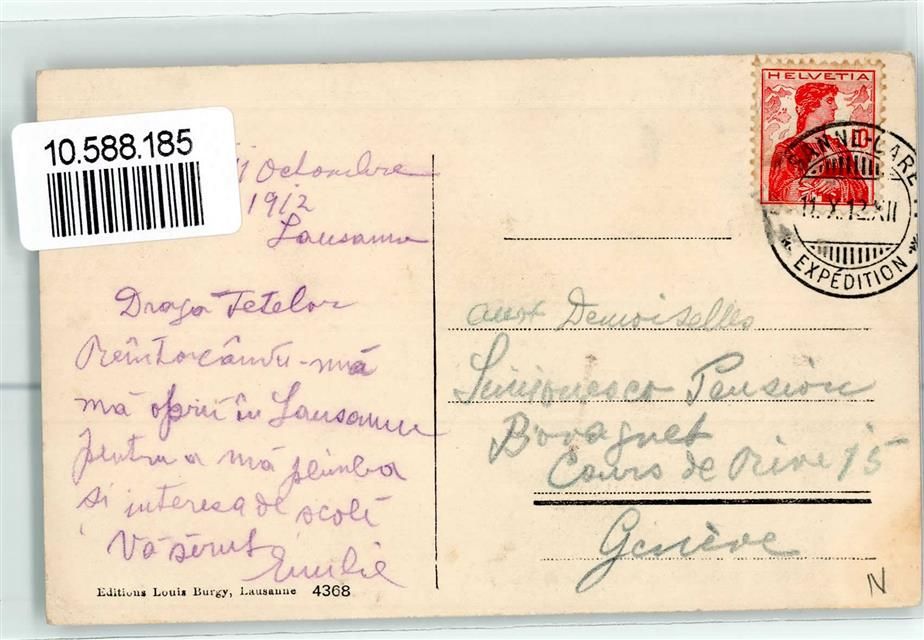 10.588.185
11 Octombre
1912
Lausanne
Draga Fetelor
Reîntorcându-mă
mă oprii în Lausanne
pentru a mă plimba
și interesa de școli
Vă sărut
Emilie
Editions Louis Burgy, Lausanne 4368
HELVETIA
10
LAUSANNE-GARE
11.X.12.XII
* EXPÉDITION *
aux Demoiselles
Simionesco Pension
Bovagnet
Cours de Rive 15
Genève
N